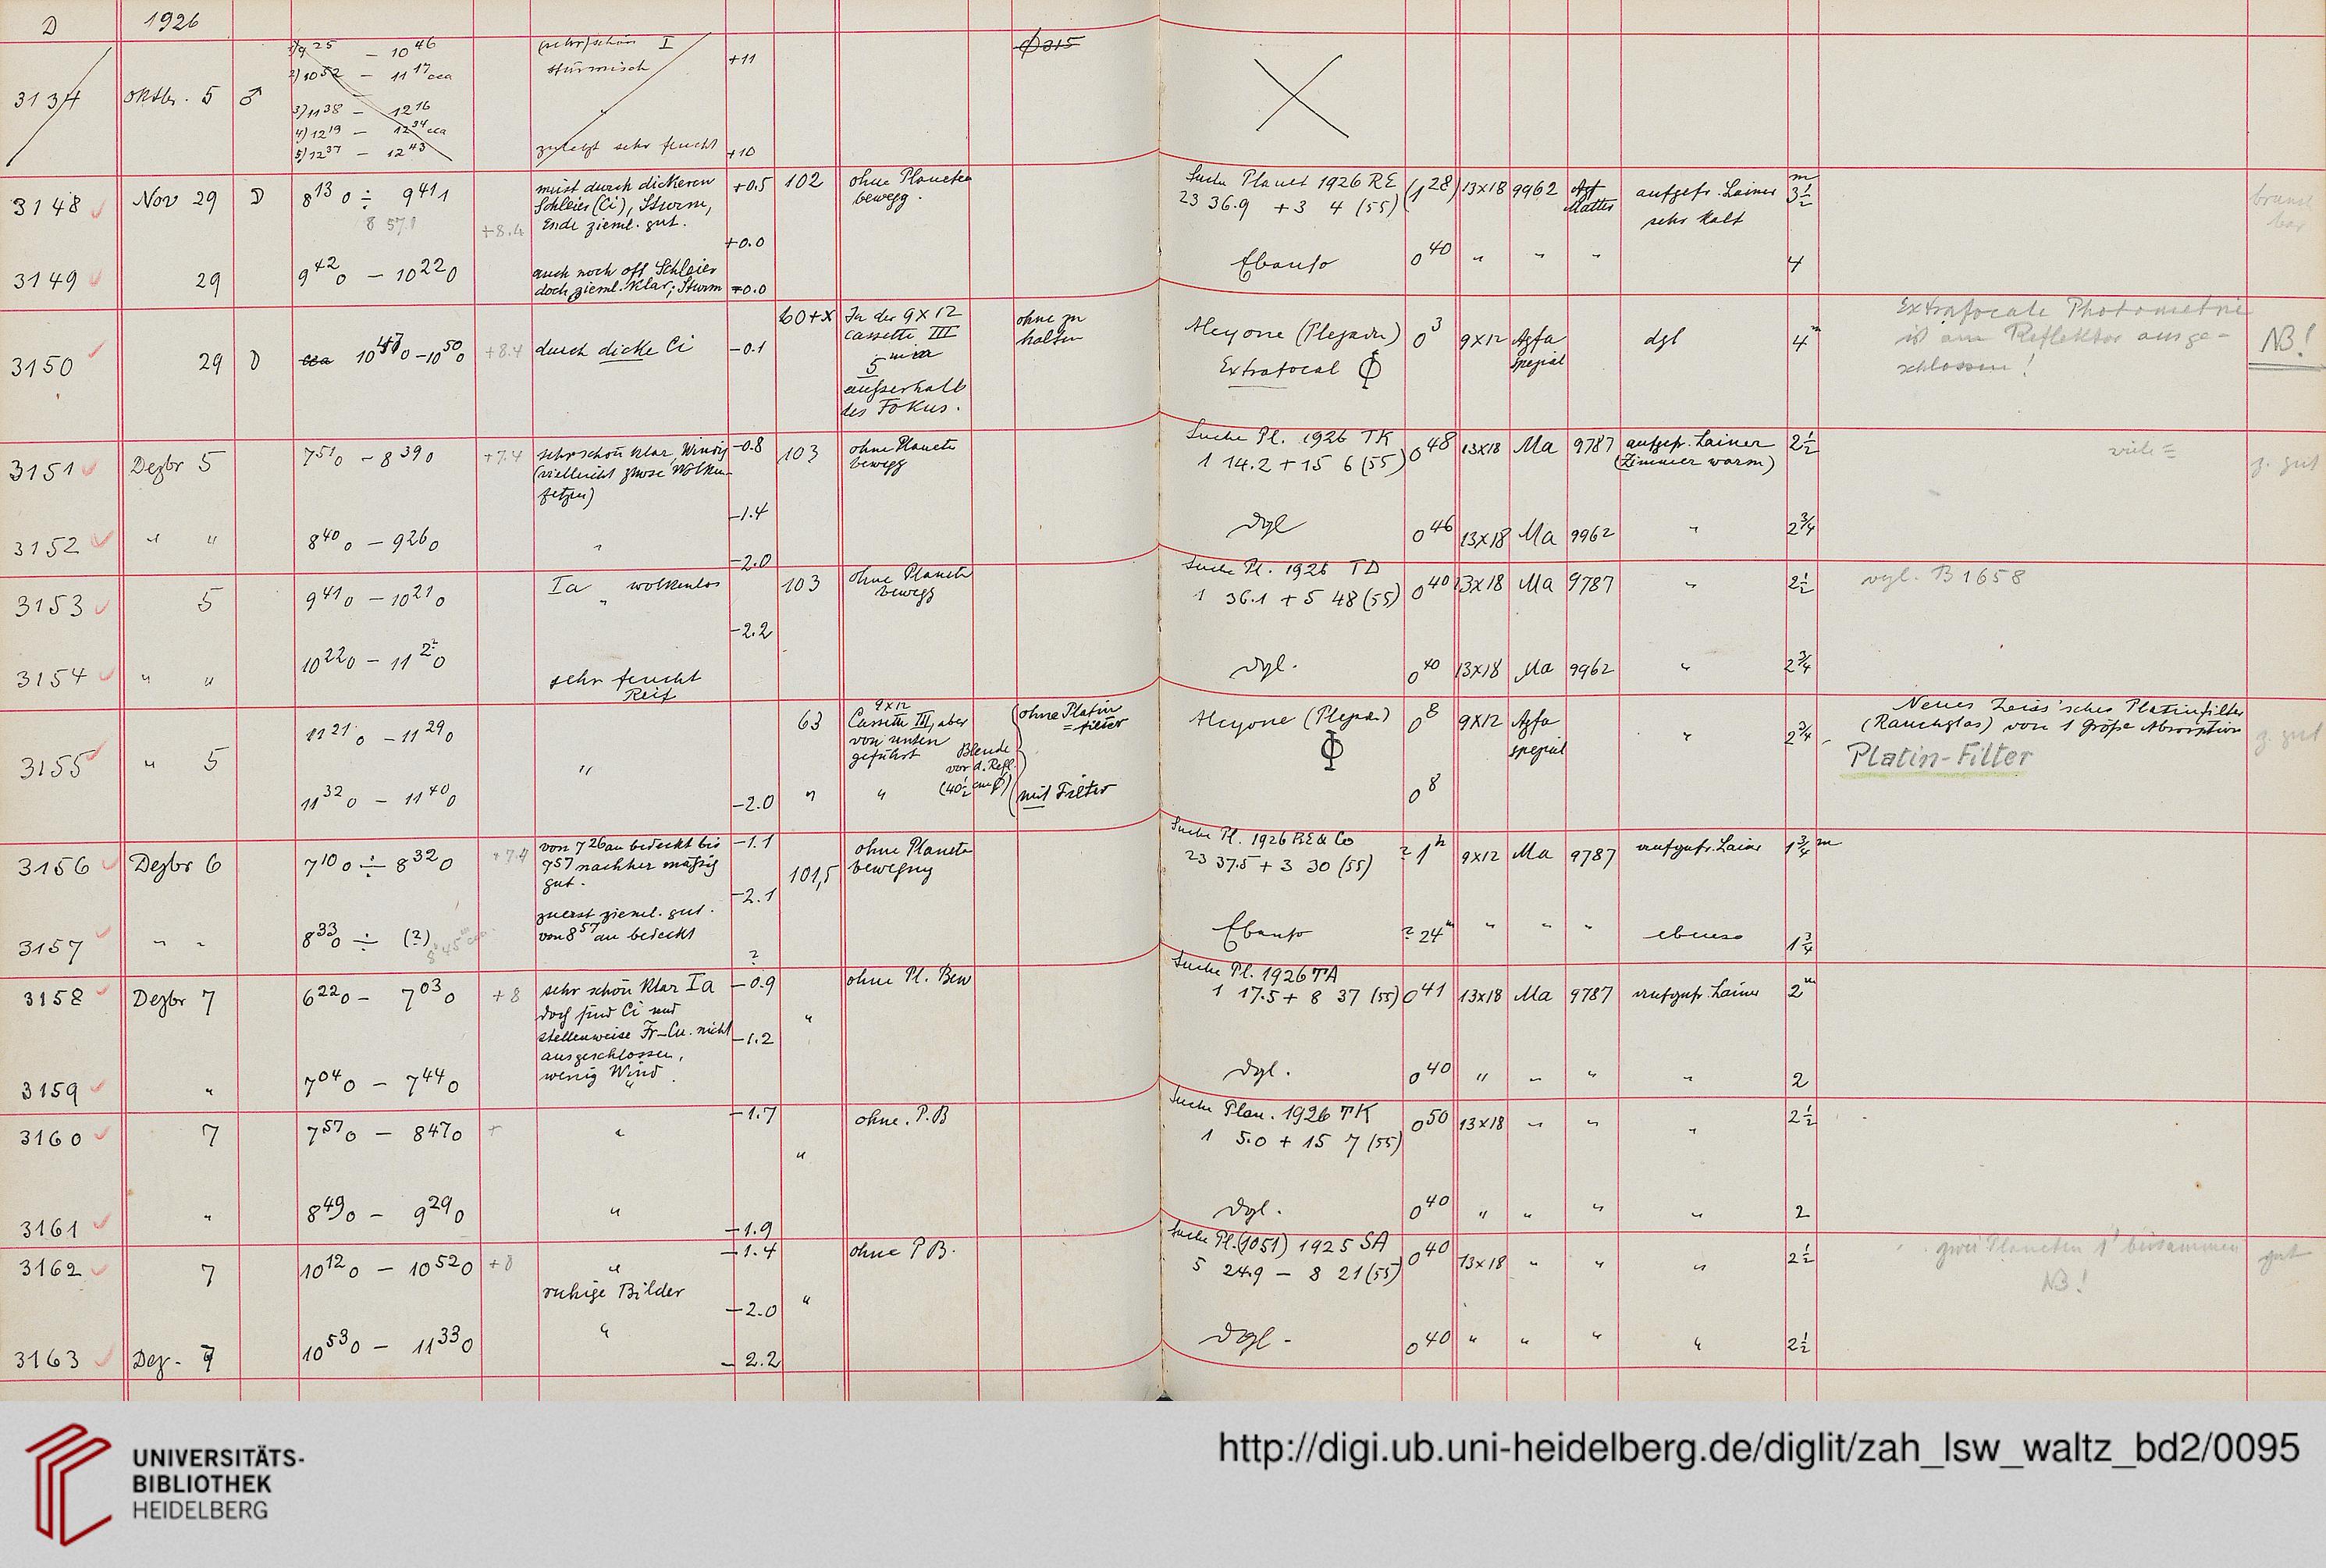 D 1926
3134 Oktbr. 5 ♂
1) 9 25 – 10 46
2) 10 52 – 11 17 cca
3) 11 38 – 12 16
4) 12 19 – 12 34 cca
5) 12 37 – 12 43
(sehr) schön I
stürmisch
"
zuletzt sehr feucht
+11
+10
Φ 315
3148 Nov 29 D 8 13 0 ÷ 9 41 1
8 57.1
+8.4
meist durch dickeren
Schleier (Ci), Sturm,
Ende zieml. gut.
+0.5
+0.0
102
ohne Planeten
bewegg.
Suche Planet 1926 RE
23 36.9 +3 4 (55)
(1 28) 13x18 9962
Matter
aufgefr. Lainer
sehr kalt
m
3½
brauch
bar
3149 29 9 42 0 – 10 22 0
auch noch oft Schleier
doch zieml. klar; Sturm
+0.0
Ebenso 0 40 " " " 4
3150 29 D cca 10 47 0 – 10 50 0 +8.4
durch dicke Ci
–0.1
60+x
In der 9x12
Cassette III
5 mm
außerhalb
des Fokus.
ohne zu
halten
Alcyone (Plejaden)
Extrafocal Φ
0 3 9x12 Agfa
spezial
dgl 4 m
Extrafocale Photometrie
ist am Reflektor ausge-
schlossen!
NB!
3151 Dezbr 5 7 51 0 – 8 39 0 +7.4
sehr schön klar, Windig
(vielleicht zwose Wolken
fetzen)
–0.8
–1.4
103
ohne Planete
bewegg
Suche Pl. 1926 TK
1 14.2 + 15 6 (55)
0 48 13x18 Ma 9787
aufgefr. Lainer
(Zimmer warm)
2½
viele =
z. gut
3152 " " 8 40 0 – 9 26 0 "
–2.0
dgl 0 46 13x18 Ma 9962 " 2¾
3153 5 9 41 0 – 10 21 0
Ia wolkenlos
"
–2.2
103
ohne Planete
bewegg
Suche Pl. 1926 TD
1 36.1 + 5 48 (55)
0 40 13x18 Ma 9787 " 2½
vgl. B 1658
3154 " " 10 22 0 – 11 2 0
sehr feucht
Reif
dgl. 0 40 13x18 Ma 9962 " 2¾
3155 " 5
11 21 0 – 11 29 0
11 32 0 – 11 40 0
"
–2.0
63
9x12
Cassette III, aber
von unten
geführt
Blende
vor d. Refl.
(40½ cm ϕ)
ohne Platin
= filter
" "
mit Filter
Alcyone (Plejad.)
Φ
0 8 9x12 Agfa
spezial
0 8
" 2¾
Neues Zeiss'sches Platinfilter
(Rauchglas) von 1 Größe Absorption
Platin-Filter
z. gut
3156 Dezbr 6 7 10 0 ÷ 8 32 0 +7.4
von 7 26 an bedeckt bis
7 57 nachher mäßig
gut.
–1.1
–2.1
101,5
ohne Planete
bewegung
Suche Pl. 1926 RE & Co
23 37.5 + 3 30 (55)
? 1 h 9x12 Ma 9787 aufgefr. Lainer 1¾ m
3157 " " 8 33 0 ÷ (?)
8 h 45 m cca.
zuerst zieml. gut.
von 8 57 an bedeckt
?
Ebenso ? 24 m " " " ebenso 1¾
3158 Dezbr 7 6 22 0 – 7 03 0 +8
sehr schön klar Ia
doch sind Ci und
stellenweise Fr-Cu. nicht
ausgeschlossen,
wenig Wind.
–0.9
–1.2
"
ohne Pl. Bew
Suche Pl. 1926 TA
1 17.5 + 8 37 (55)
0 41 13x18 Ma 9787 aufgefr. Lainer 2 m
3159 " 7 04 0 – 7 44 0 "
dgl. 0 40 " " " " 2
3160 7 7 57 0 – 8 47 0 + "
–1.7
"
ohne. P. B
Suche Plan. 1926 TK
1 5.0 + 15 7 (55)
0 50 13x18 " " " 2½
3161 " 8 49 0 – 9 29 0 "
–1.9
dgl. 0 40 " " " " 2
3162 7 10 12 0 – 10 52 0 +8
"
ruhige Bilder
–1.4
–2.0
"
ohne P B.
Suche Pl. (1051) 1925 SA
5 24.9 – 8 21 (55)
0 40 13x18 " " " 2½
zwei Planeten 1° beisammen
NB!
gut
3163 Dez. 7 10 53 0 – 11 33 0 "
–2.2
dgl. 0 40 " " " " 2½
UNIVERSITÄTS-
BIBLIOTHEK
HEIDELBERG
http://digi.ub.uni-heidelberg.de/diglit/zah_lsw_waltz_bd2/0095